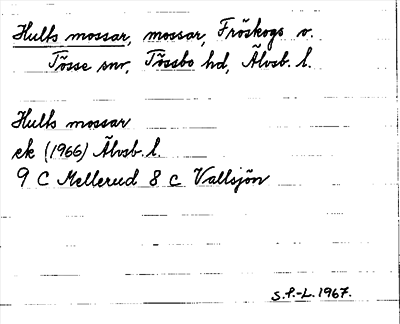 Hults mossar, mossar, Fröskogs o.
Tösse snr, Tössbo hd, Älvsb. l.
Hults mossar
ek (1966) Älvsb. l.
9 C Mellerud 8 c Vallsjön
S.P.-L. 1967.